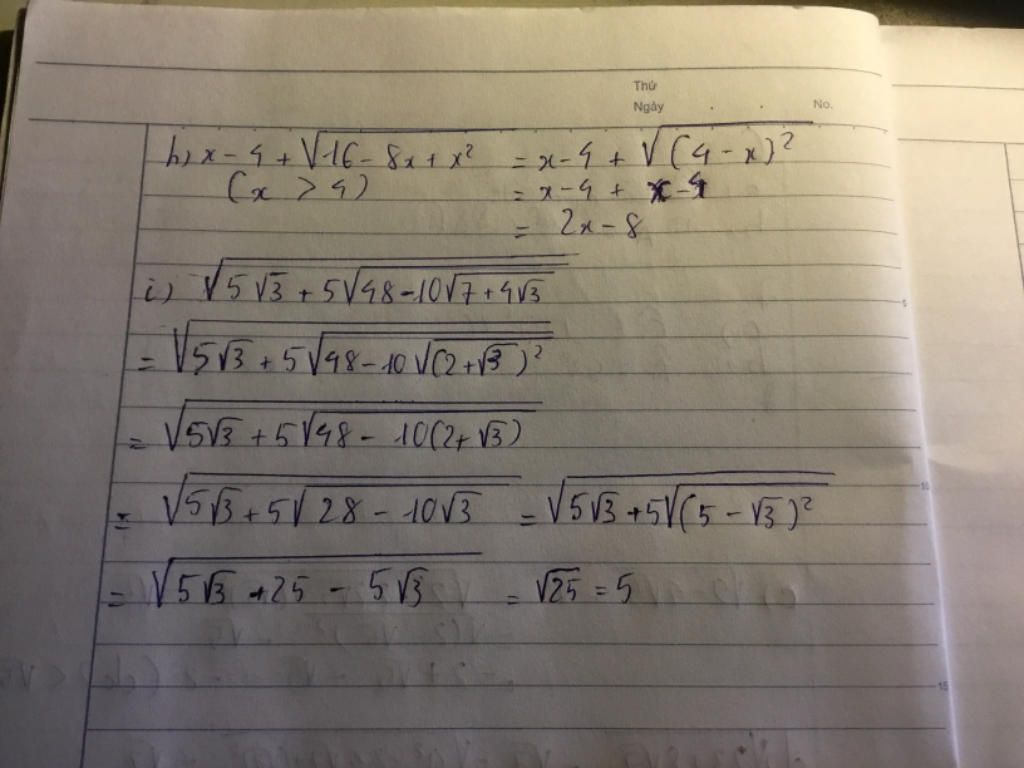 Thứ
Ngày . . No.
h) x - 4 + √(16 - 8x + x²) = x - 4 + √((4 - x)²)
(x > 4) = x - 4 + x - 4
= 2x - 8
i) √(5√3 + 5√(48 - 10√(7 + 4√3)))
= √(5√3 + 5√(48 - 10√((2 + √3)²)))
= √(5√3 + 5√(48 - 10(2 + √3)))
= √(5√3 + 5√(28 - 10√3)) = √(5√3 + 5√((5 - √3)²))
= √(5√3 + 25 - 5√3) = √25 = 5